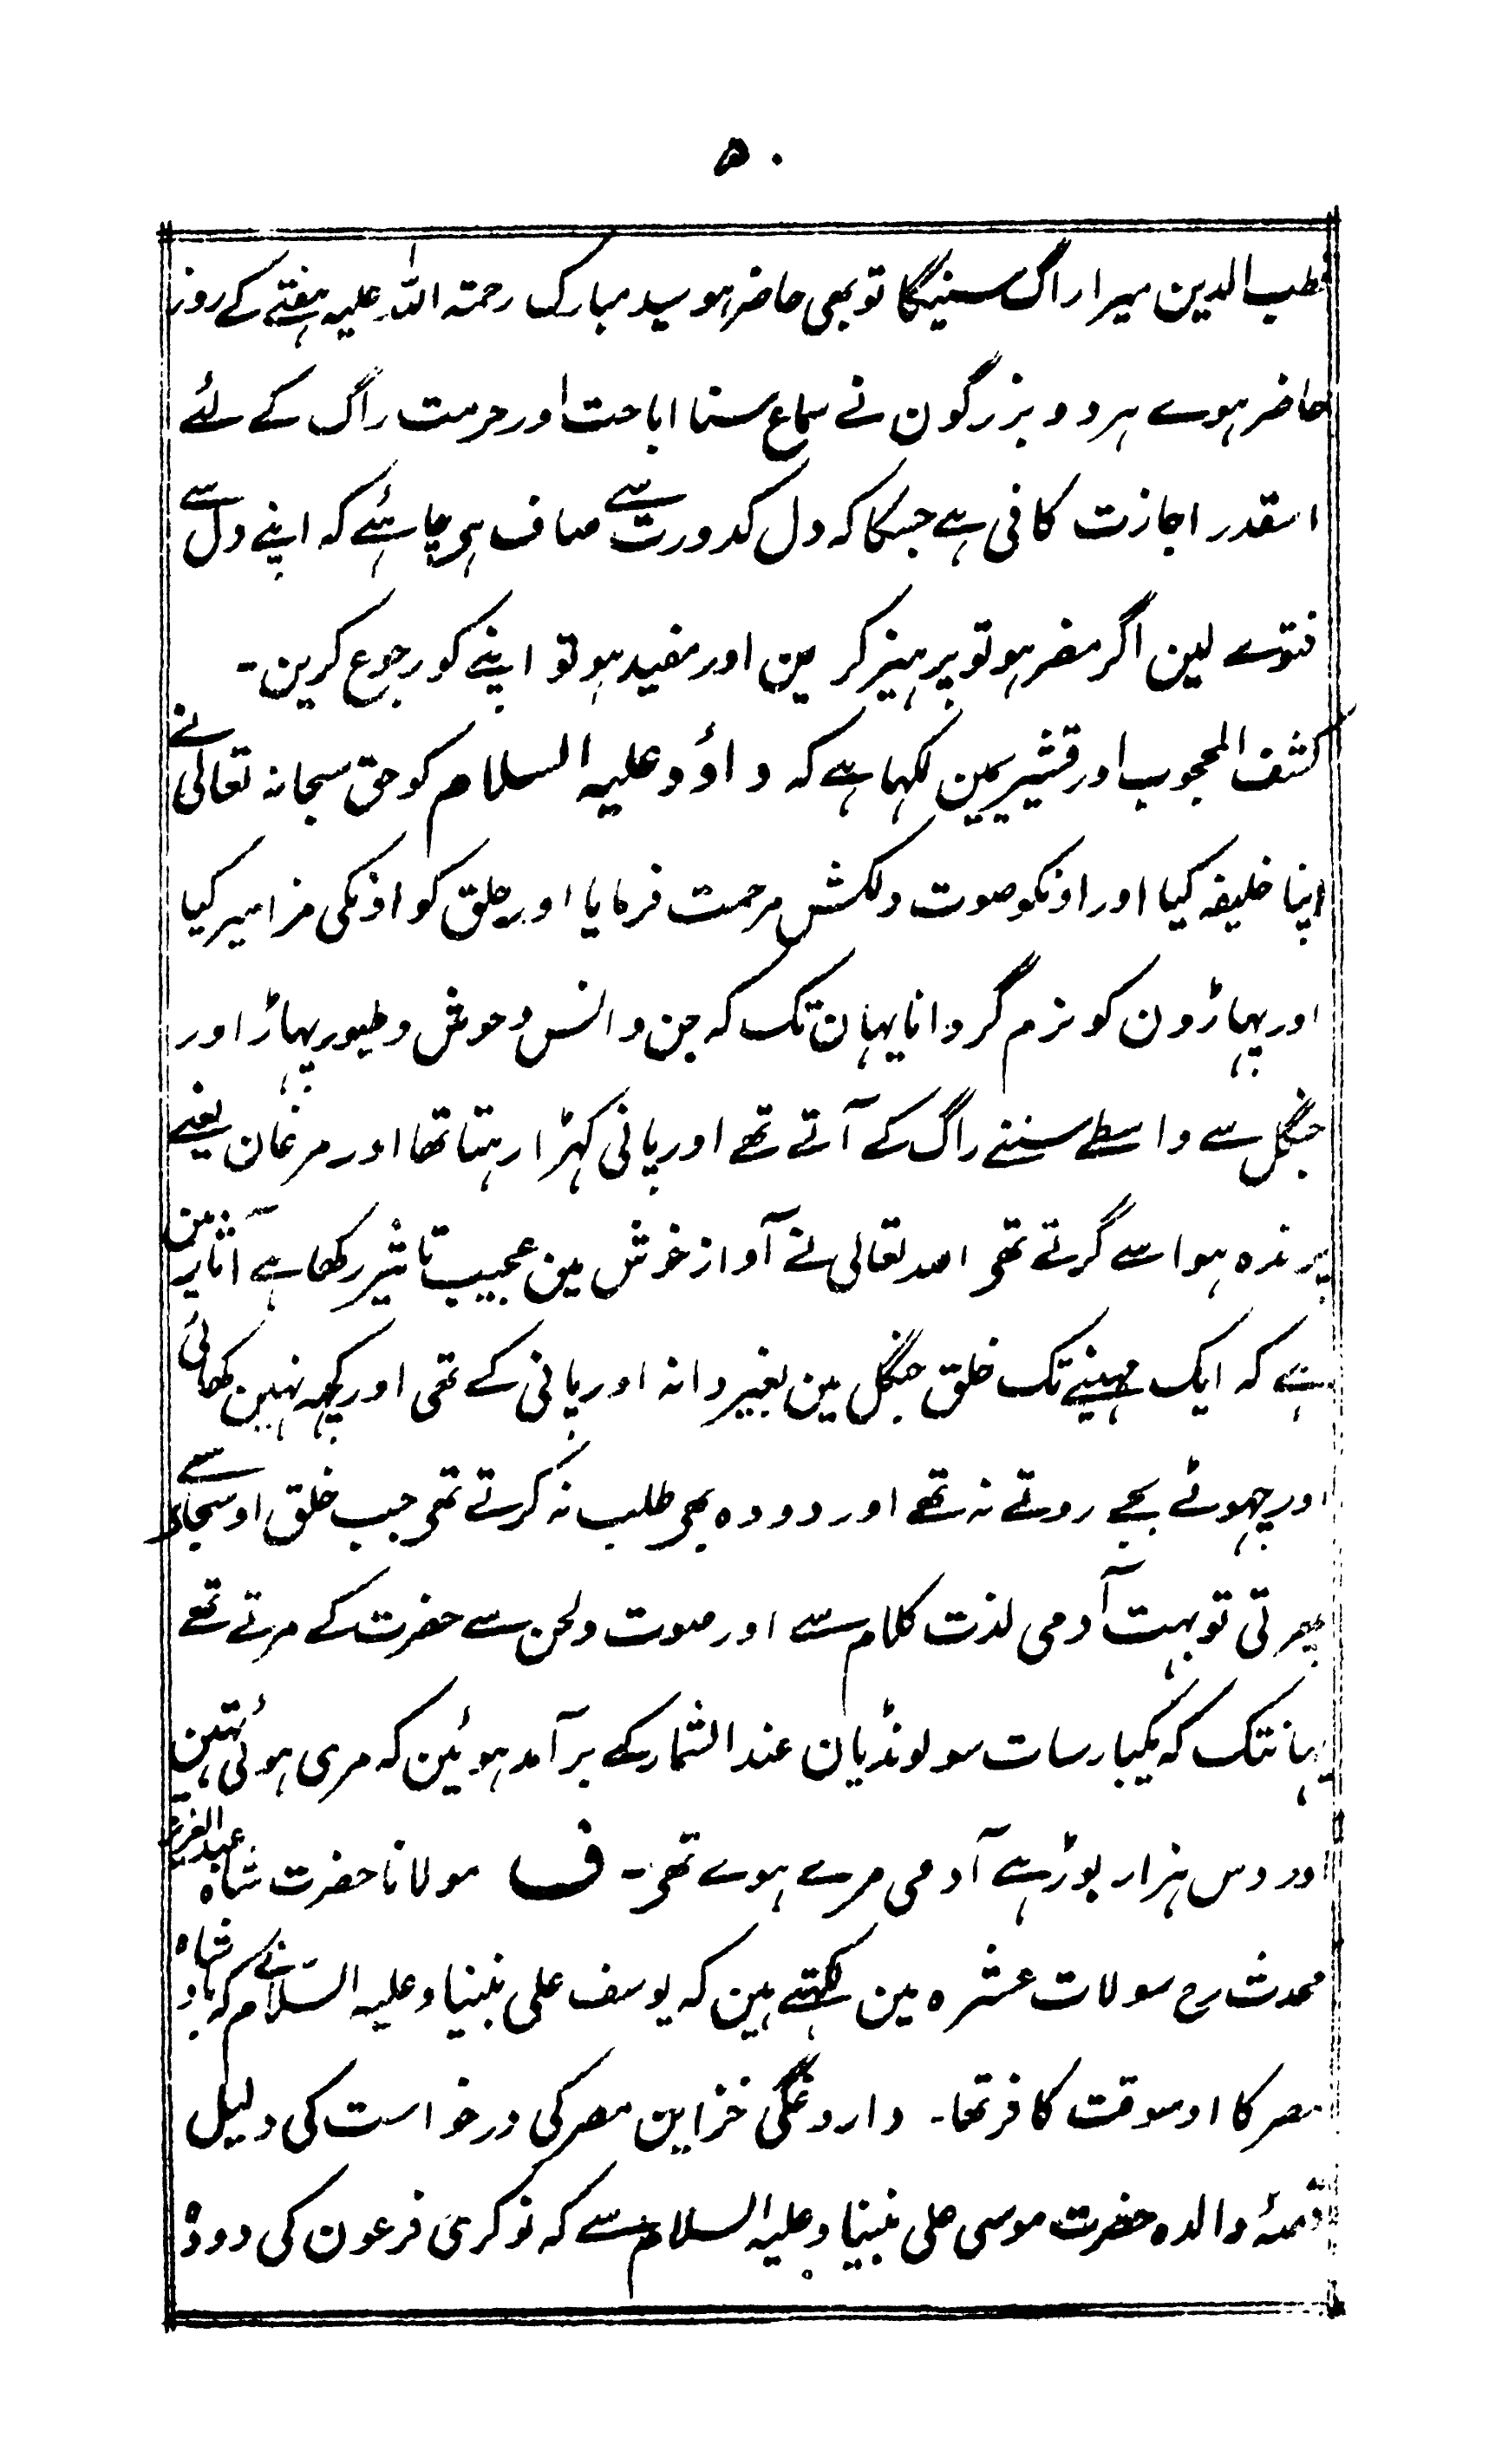 ۵۰
قطب الدین میرا راگ سنیگا تو بھی حاضر ہو سید مبارک رحمتہ اللہ علیہ ہفتے کے روز
حاضر ہوے ہر دو بزرگون نے سماع سنا اباحت اور حرمت راگ کے لئے
اسقدر اجازت کافی ہے جسکا کہ دل کدورت سے صاف ہی چاہئے کہ اپنے دل سے
فتوے لین اگر مضر ہو تو پرہیز کرین اور مفید ہو تو اپنے کو رجوع کرین۔
کشف المحجوب اور قشیریمین لکہا ہے کہ داؤد علیہ السلام کو حق سبحانہ تعالی نے
اپنا خلیفہ کیا اور اونکو صوت دلکش مرحمت فرمایا اور حلق کو اونکی مزامیر کیا
اور پہاڑون کو نرم گردانا یہان تک کہ جن و انس و حوش و طیور پہاڑ اور
جنگل سے واسطے سننے راگ کے آتے تھے اور پانی کہڑا رہتا تھا اور مرغان یعنے
پرندہ ہوا سے گرتے تھی اللہ تعالی نے آواز خوش مین عجیب تاثیر رکھا ہے آثار مین
ہے کہ ایک مہینے تک خلق جنگل مین بغیر دانہ اور پانی کے تھی اور کچہہ نہین کھائی
اور چہوٹے بچے روتے نہ تھے اور دودہ بھی طلب نہ کرتے تھی جب خلق اوسجا سے
پھرتی تو بہت آدمی لذت کلام سے اور صوت و لحن سے حضرت کے مرتے تھے
یہانتک کہ یکبار سات سو لونڈیان عند الشمار کے برآمد ہوئین کہ مری ہوئی تہین
اور دس ہزار بوڑہے آدمی مرے ہوے تھی۔ ف مولانا حضرت شاہ عبدالعزیز
محدث رح سولات عشرہ مین لکہتے ہین کہ یوسف علی نبینا و علیہ السلام نے کہ بادشاہ
مصر کا اوسوقت کافر تھا۔ داروغگی خزاین مصر کی درخواست کی دلیل
قصۂ والدہ حضرت موسی علی نبینا و علیہ السلام سے کہ نوکری فرعون کی دودہ